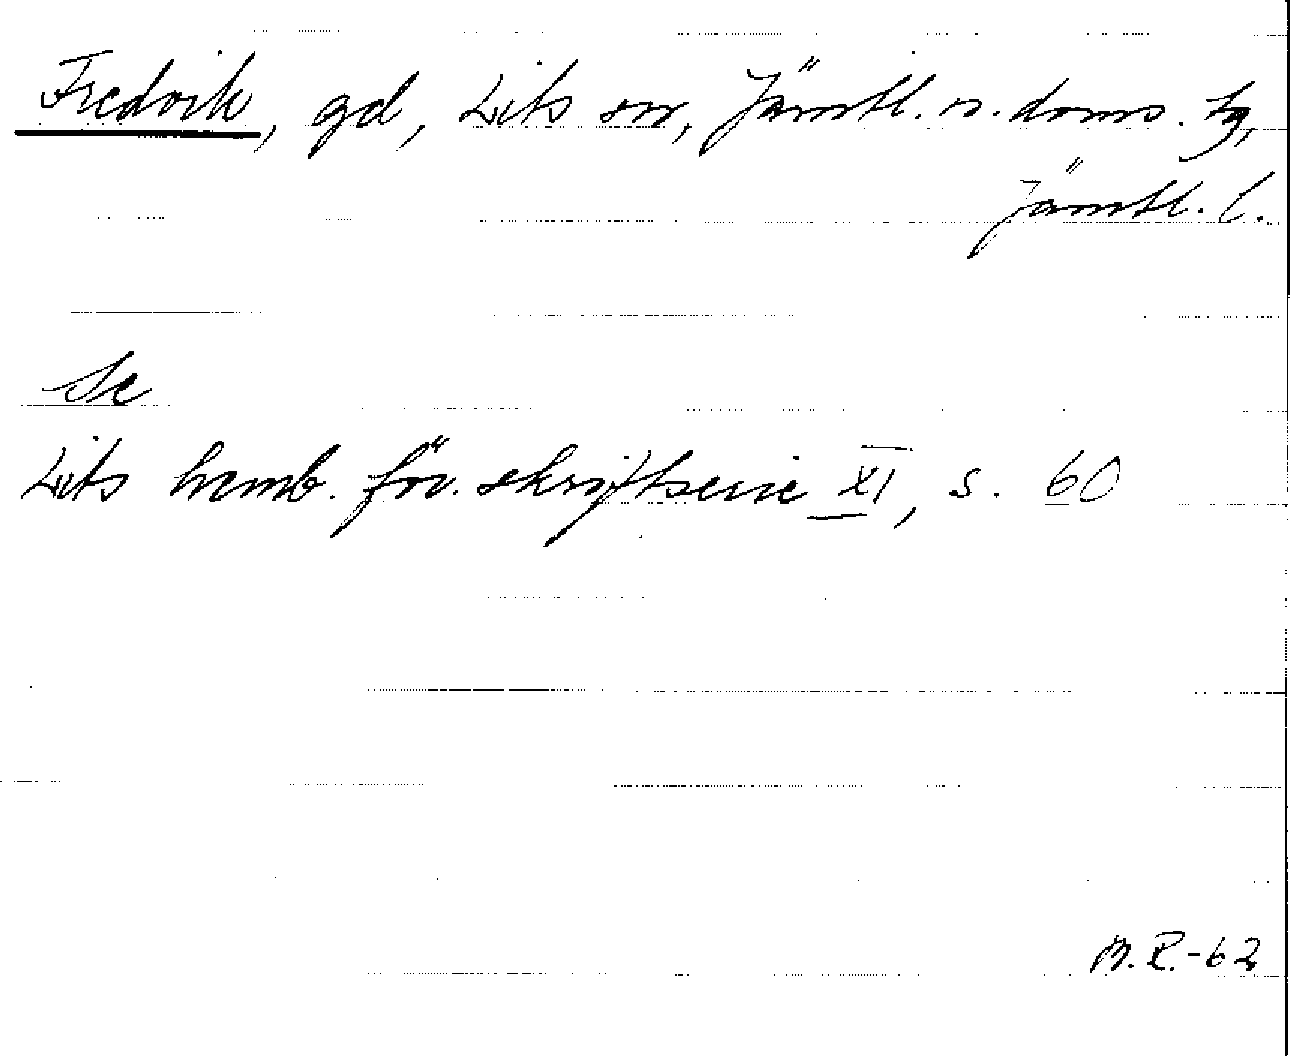 Fredrik, gd, Lits sn, Jämtl. n. doms. tg,
Jämtl. l.
Se
Lits hemb. för. skriftserie XI, s. 60
M.R.-62